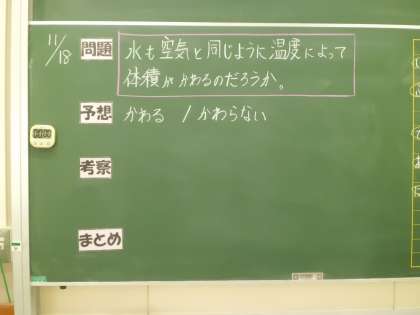 11/18
問題
水も空気と同じように温度によって
体積がかわるのだろうか。
予想
かわる / かわらない
考察
まとめ